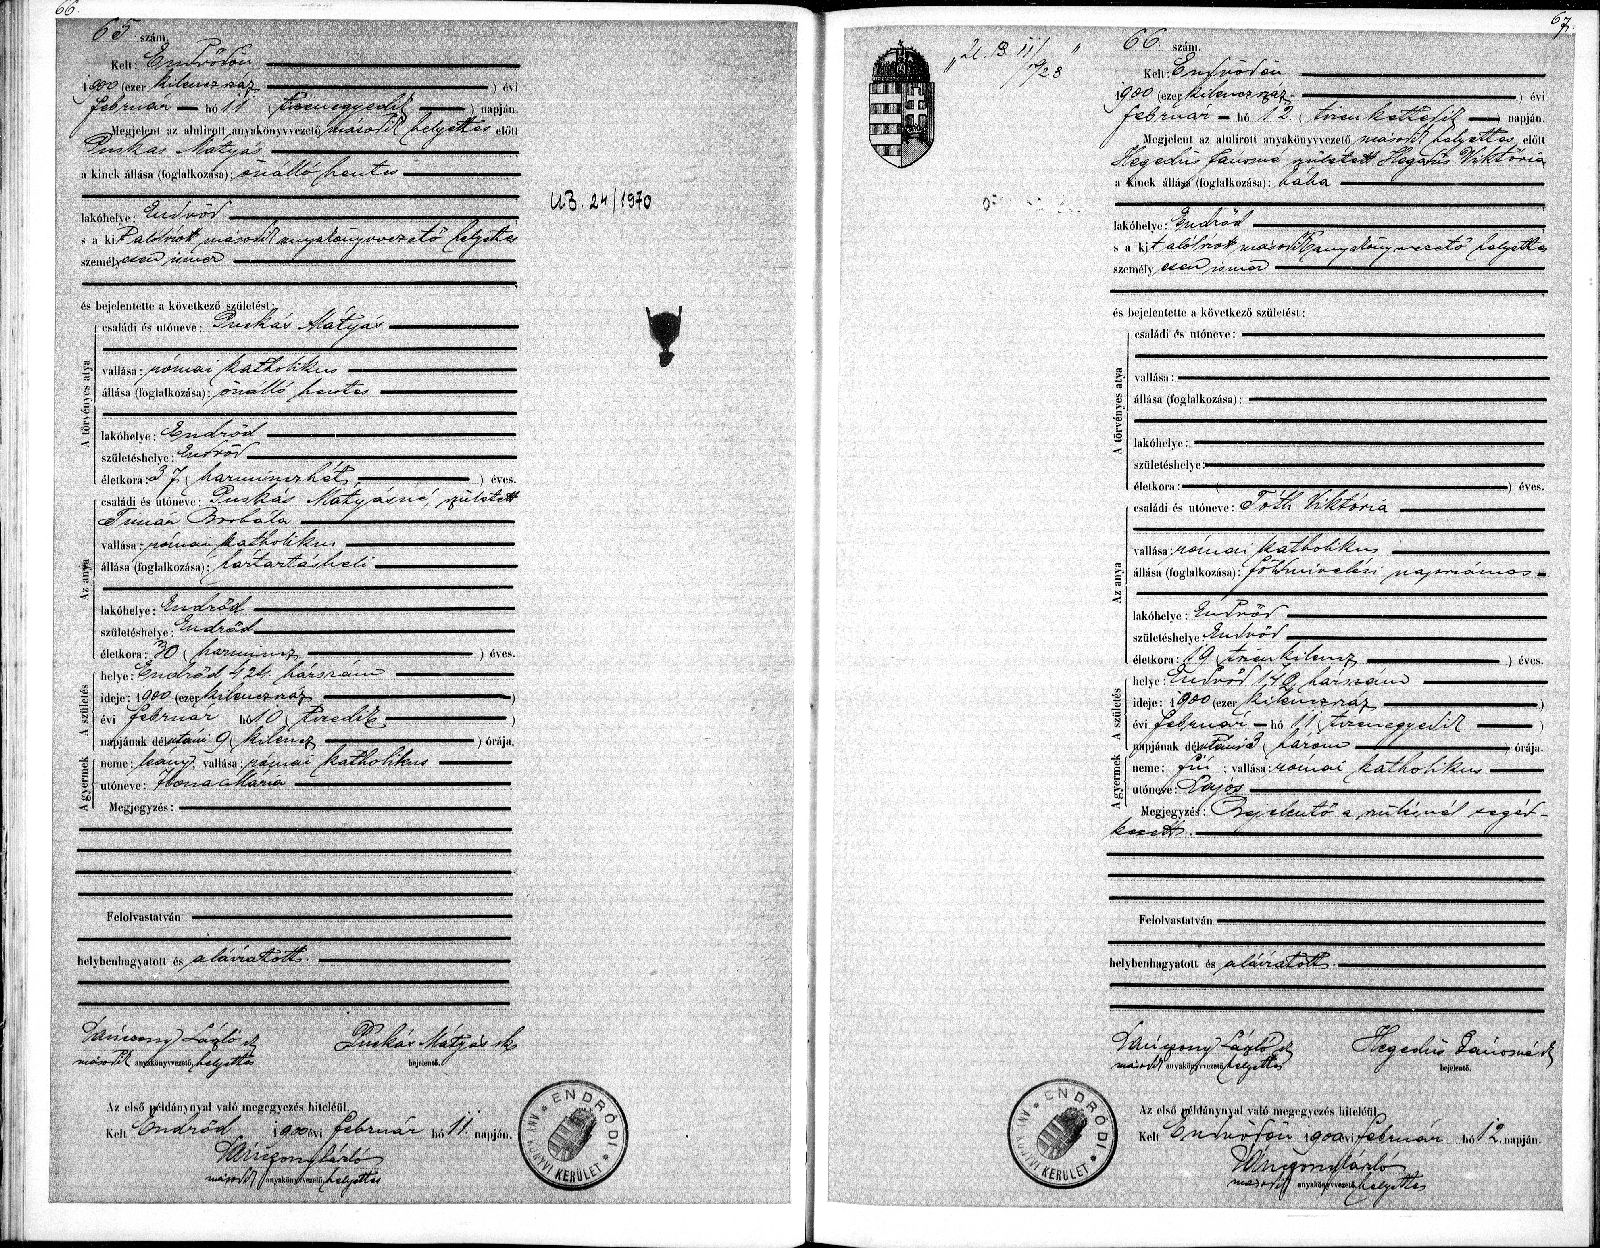 66.
65 szám.
Kelt: Endrődön
1900 (ezer kilenczszáz) évi
február hó 11 (tizenegyedik) napján.
Megjelent az alulirott anyakönyvvezető második helyettes előtt
Puskás Mátyás
a kinek állása (foglalkozása): önálló hentes
lakóhelye: Endrőd
s a kit alólirott második anyakönyvvezető helyettes
személyesen ismer
és bejelentette a következő születést:
A törvényes atya
családi és utóneve: Puskás Mátyás
vallása: római katholikus
állása (foglalkozása): önálló hentes
lakóhelye: Endrőd
születéshelye: Endrőd
életkora: 37 (harminczhét) éves.
Az anya
családi és utóneve: Puskás Mátyásné, született
Timár Borbála
vallása: római katholikus
állása (foglalkozása): háztartásbeli
lakóhelye: Endrőd
születéshelye: Endrőd
életkora: 30 (harmincz) éves.
A születés
helye: Endrőd 424 házszám
ideje: 1900 (ezer kilenczszáz)
évi február hó 10 (tizedik)
napjának délutáni 9 (kilencz) órája.
A gyermek
neme: leány; vallása: római katholikus
utóneve: Ilona Mária
Megjegyzés:
Felolvastatván
helybenhagyatott és aláiratott.
Puskás Mátyás sk
második anyakönyvvezető helyettes
bejelentő.
Az első példánynyal való megegyezés hiteléül.
Kelt Endrőd 1900 évi február hó 11. napján.
második anyakönyvvezető helyettes
ENDRŐDI ANYAKÖNYVI KERÜLET
UB. 24/1970
67.
66. szám.
Kelt: Endrődön
1900 (ezer kilenczszáz) évi
február hó 12 (tizenkettedik) napján.
Megjelent az alulirott anyakönyvvezető második helyettes előtt
Hegedüs Jánosné született Hegedüs Viktória
a kinek állása (foglalkozása): bába
lakóhelye: Endrőd
s a kit alólirott második anyakönyvvezető helyettes
személyesen ismer
és bejelentette a következő születést:
A törvényes atya
családi és utóneve:
vallása:
állása (foglalkozása):
lakóhelye:
születéshelye:
életkora: ( ) éves.
Az anya
családi és utóneve: Tóth Viktória
vallása: római katholikus
állása (foglalkozása): földmivelési napszámos
lakóhelye: Endrőd
születéshelye Endrőd
életkora: 19 (tizenkilencz) éves.
A születés
helye: Endrőd házszám
ideje: 1900 (ezer kilenczszáz)
évi február hó 11 (tizenegyedik)
napjának délutáni 3 (három) órája.
A gyermek
neme: fiú; vallása: római katholikus
utóneve: Lajos
Megjegyzés: Bejelentő a szülésnél segéd-
kezett.
Felolvastatván
helybenhagyatott és aláiratott.
Hegedüs Jánosné sk
második anyakönyvvezető helyettes
bejelentő.
Az első példánynyal való megegyezés hiteléül
Kelt Endrődön 1900 évi február hó 12. napján.
második anyakönyvvezető helyettes
ENDRŐDI ANYAKÖNYVI KERÜLET